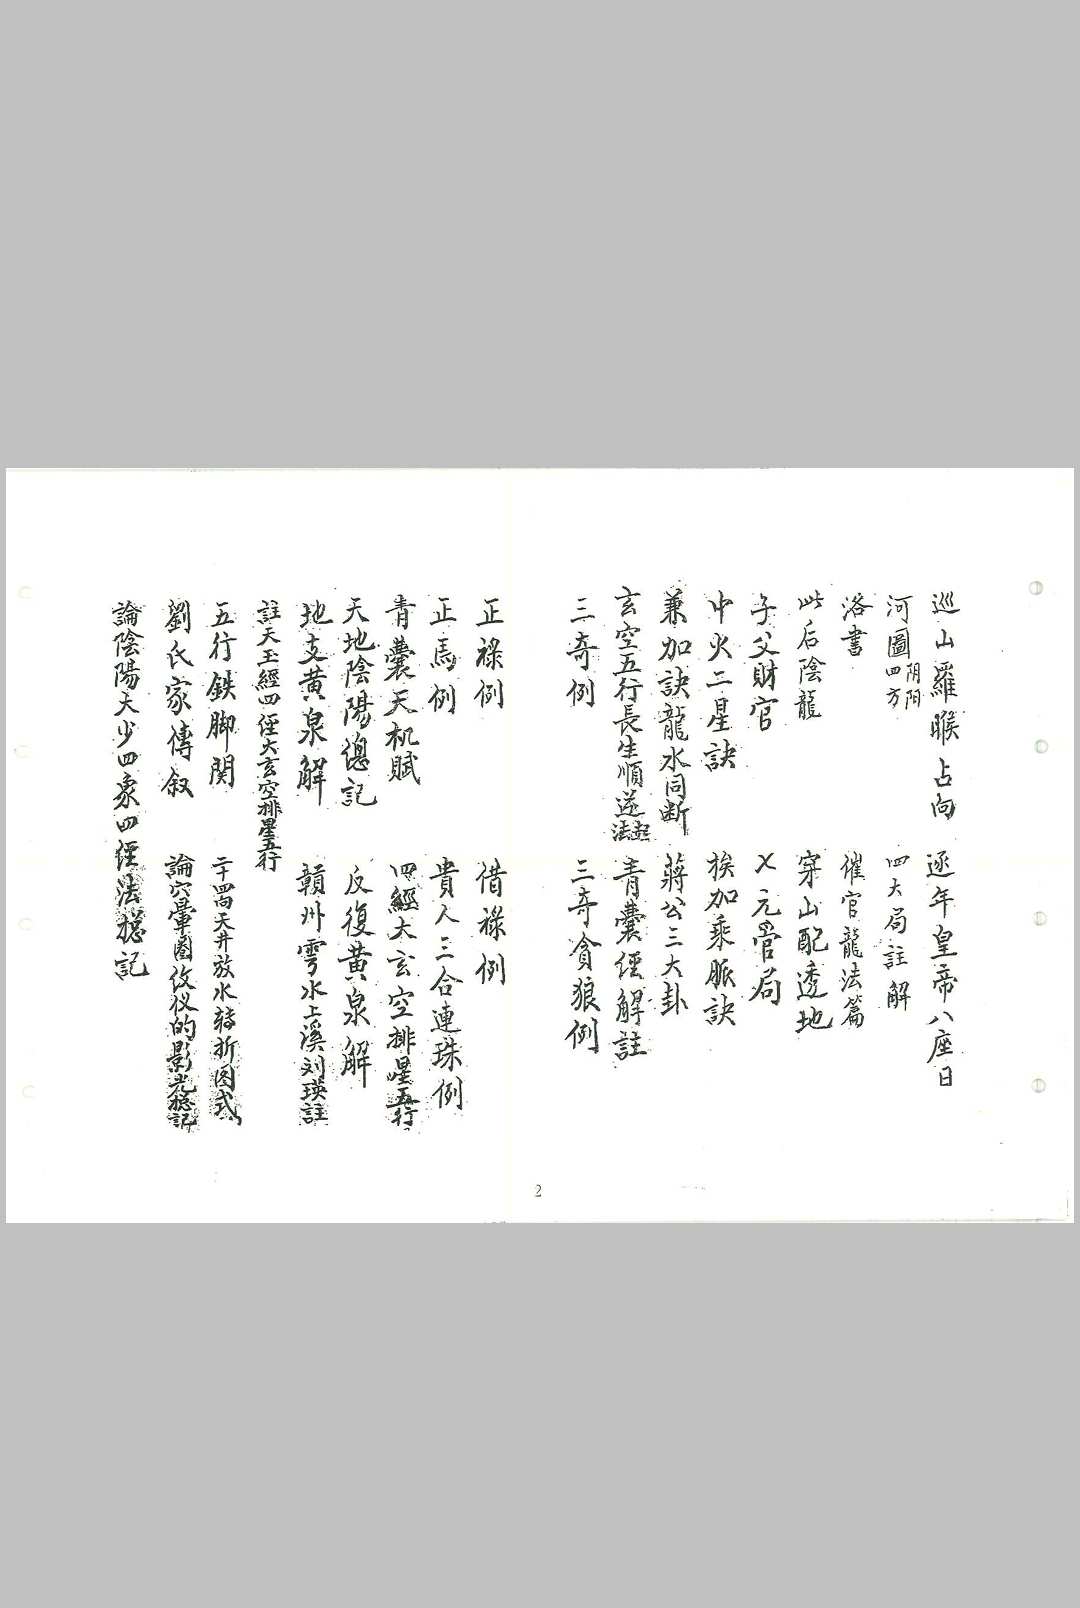 巡山羅睺占向 逐年皇帝八座日
河圖四方阴阳 四大局註解
洛書 催官龍法篇
此后陰龍 穿山配透地
子父財官 乂元官局
中火三星訣 挨加乘脈訣
兼加訣龍水同断 蔣公三大卦
玄空五行長生順逆起法 青囊經解註
三奇例 三奇貪狼例
正祿例 借祿例
正馬例 貴人三合連珠例
青囊天机賦 四經大玄空排星五行
天地陰陽總記 反復黃泉解
地支黃泉解 贛州雩水上溪刘瑛註
註天玉經四經大玄空排星五行
五行鉄脚関 二十四天井放水转折图式
劉氏家傳叙 論穴暈圈仪的影光總記
論陰陽太少四象四經法總記
2